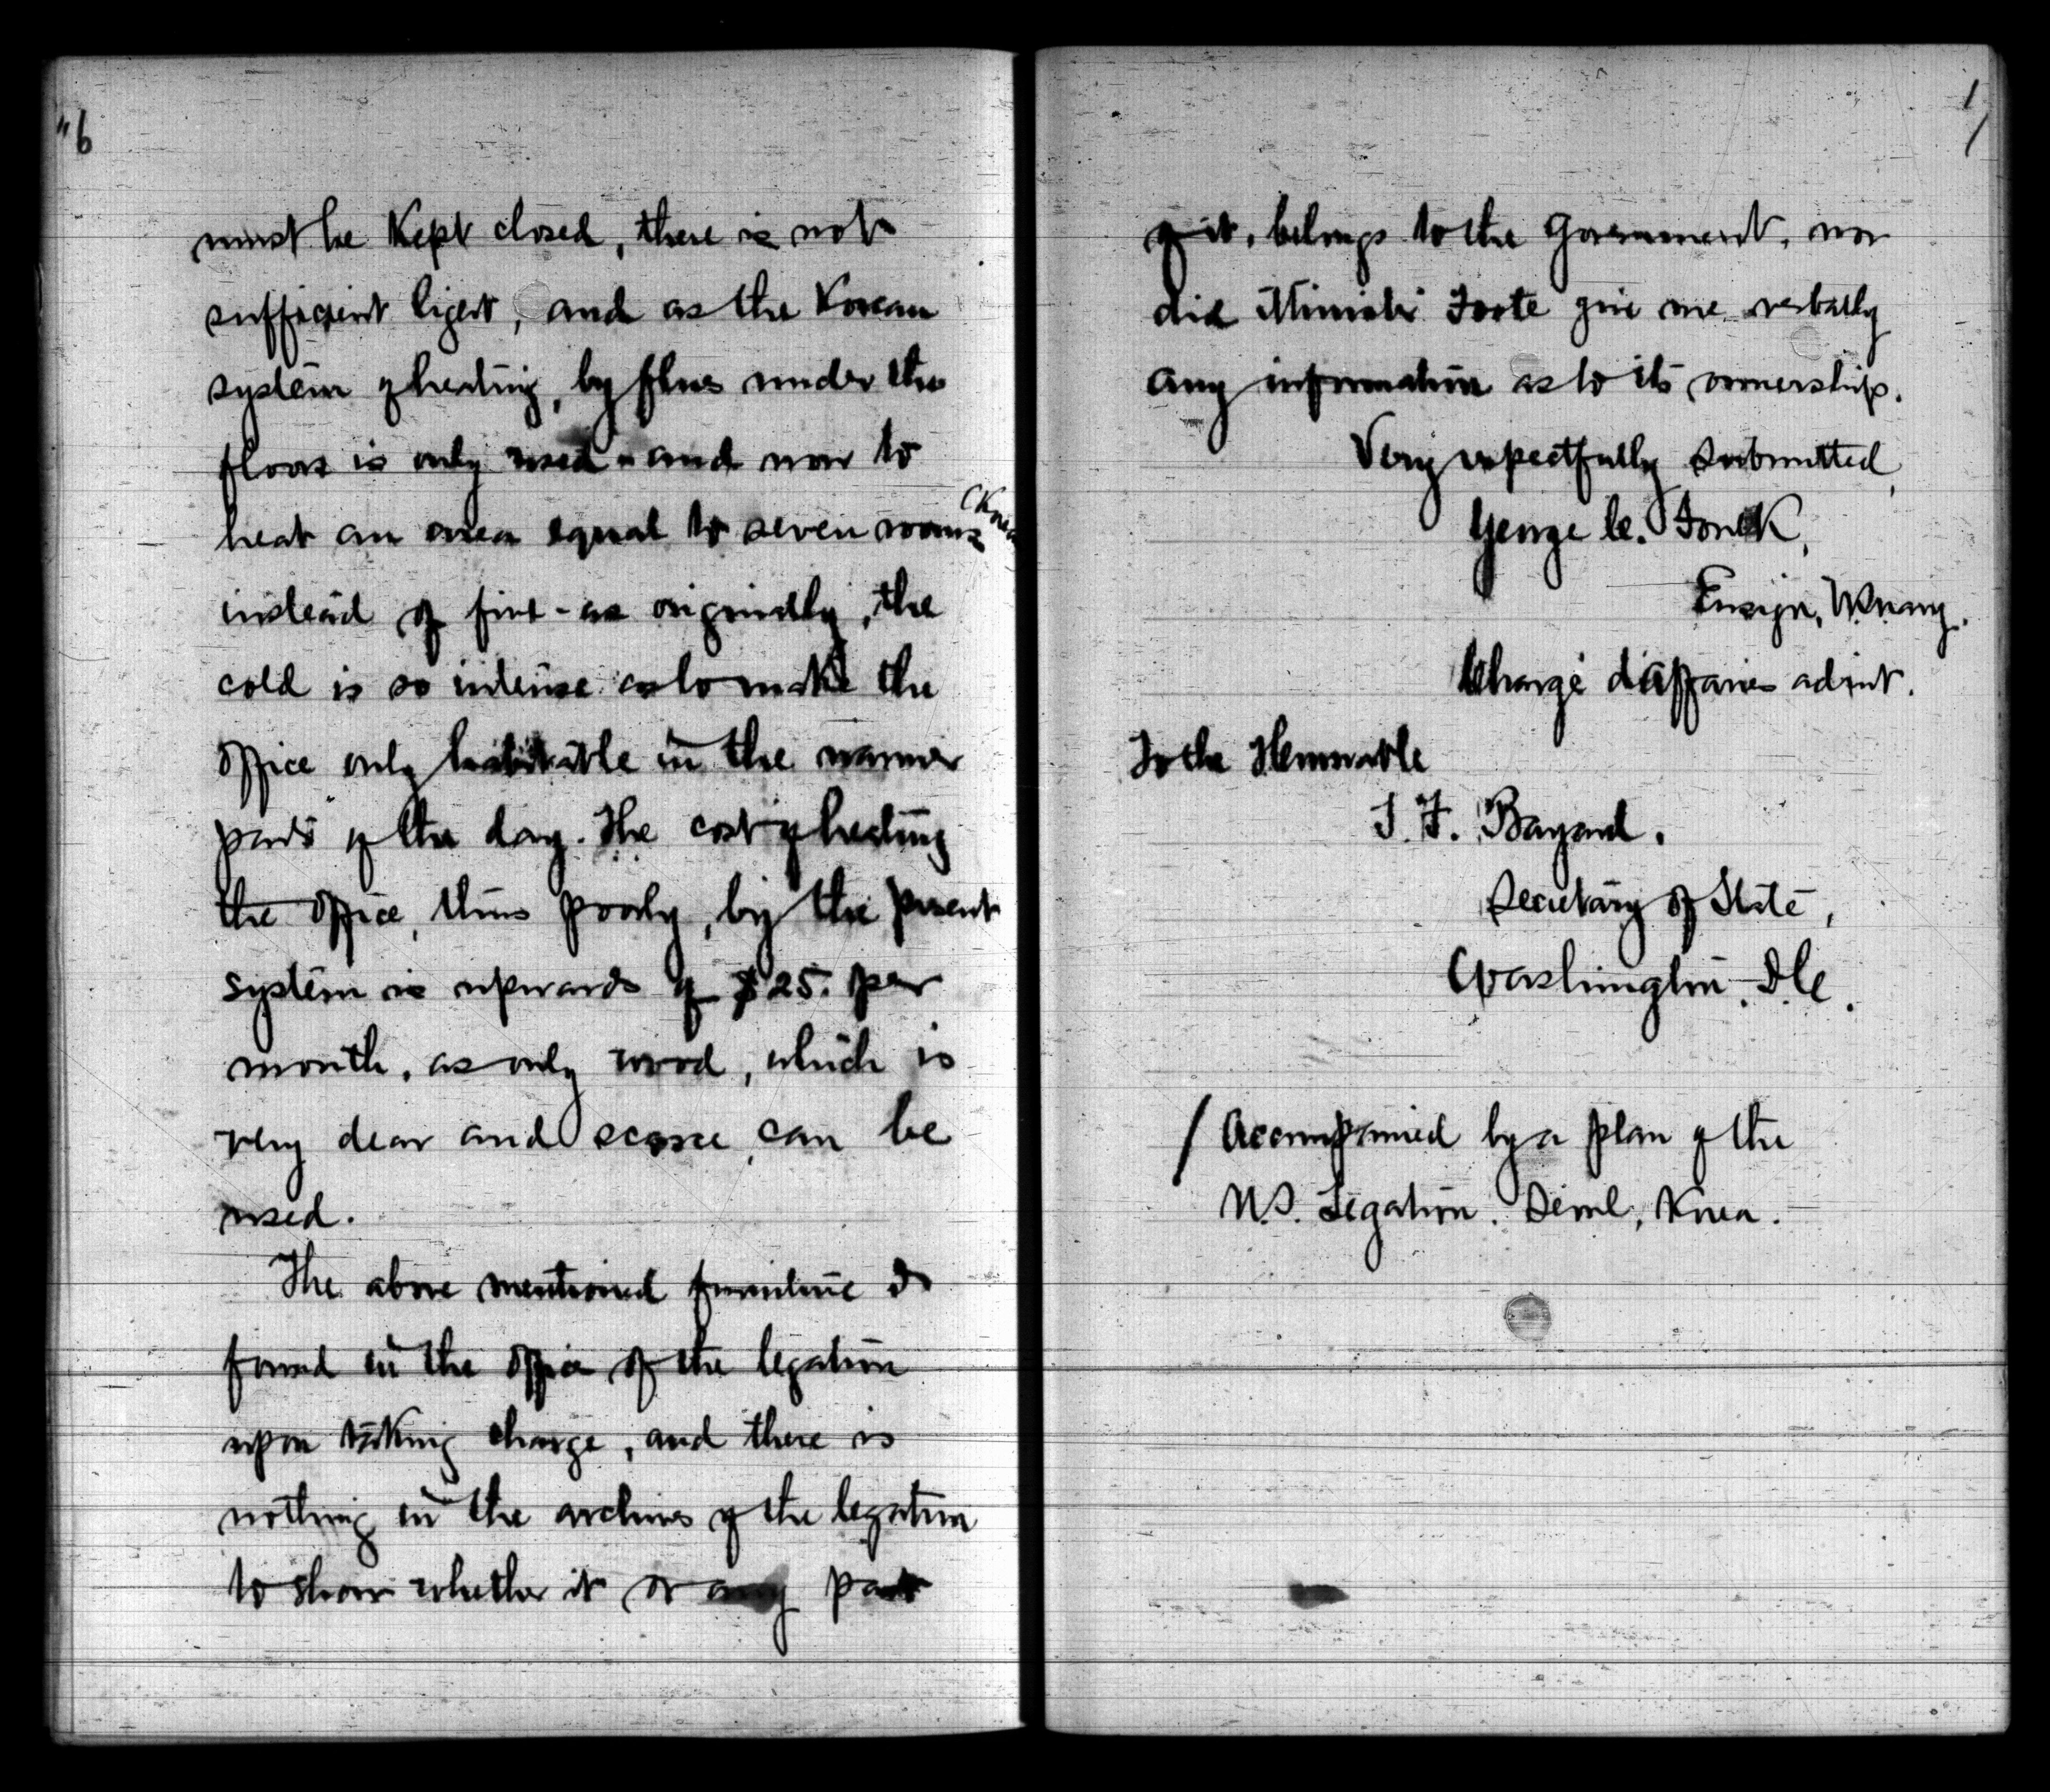 "6
must be kept closed, there is not
sufficient light, and as the Korean
system of heating, by flues under the
floors is only used - and now to
heat an area equal to seven rooms (Korean
instead of five - as originally, the
cold is so intense as to make the
office only habitable in the warmer
parts of the day. The cost of heating
the office, thus poorly, by the present
system is upwards of $25. per
month, as only wood, which is
very dear and scarce, can be
used.
The above mentioned furniture I
found in the office of the legation
upon taking charge, and there is
nothing in the archives of the legation
to show whether it or any part
of it, belongs to the Government, nor
did Minister Foote give me verbally
any information as to its ownership.
Very respectfully submitted,
George C. Foulk,
Ensign, U.S. Navy.
Chargé d'affaires ad int.
To the Honorable
T. F. Bayard,
Secretary of State,
Washington, D.C.
/ Accompanied by a plan of the
U.S. Legation. Seoul, Korea.